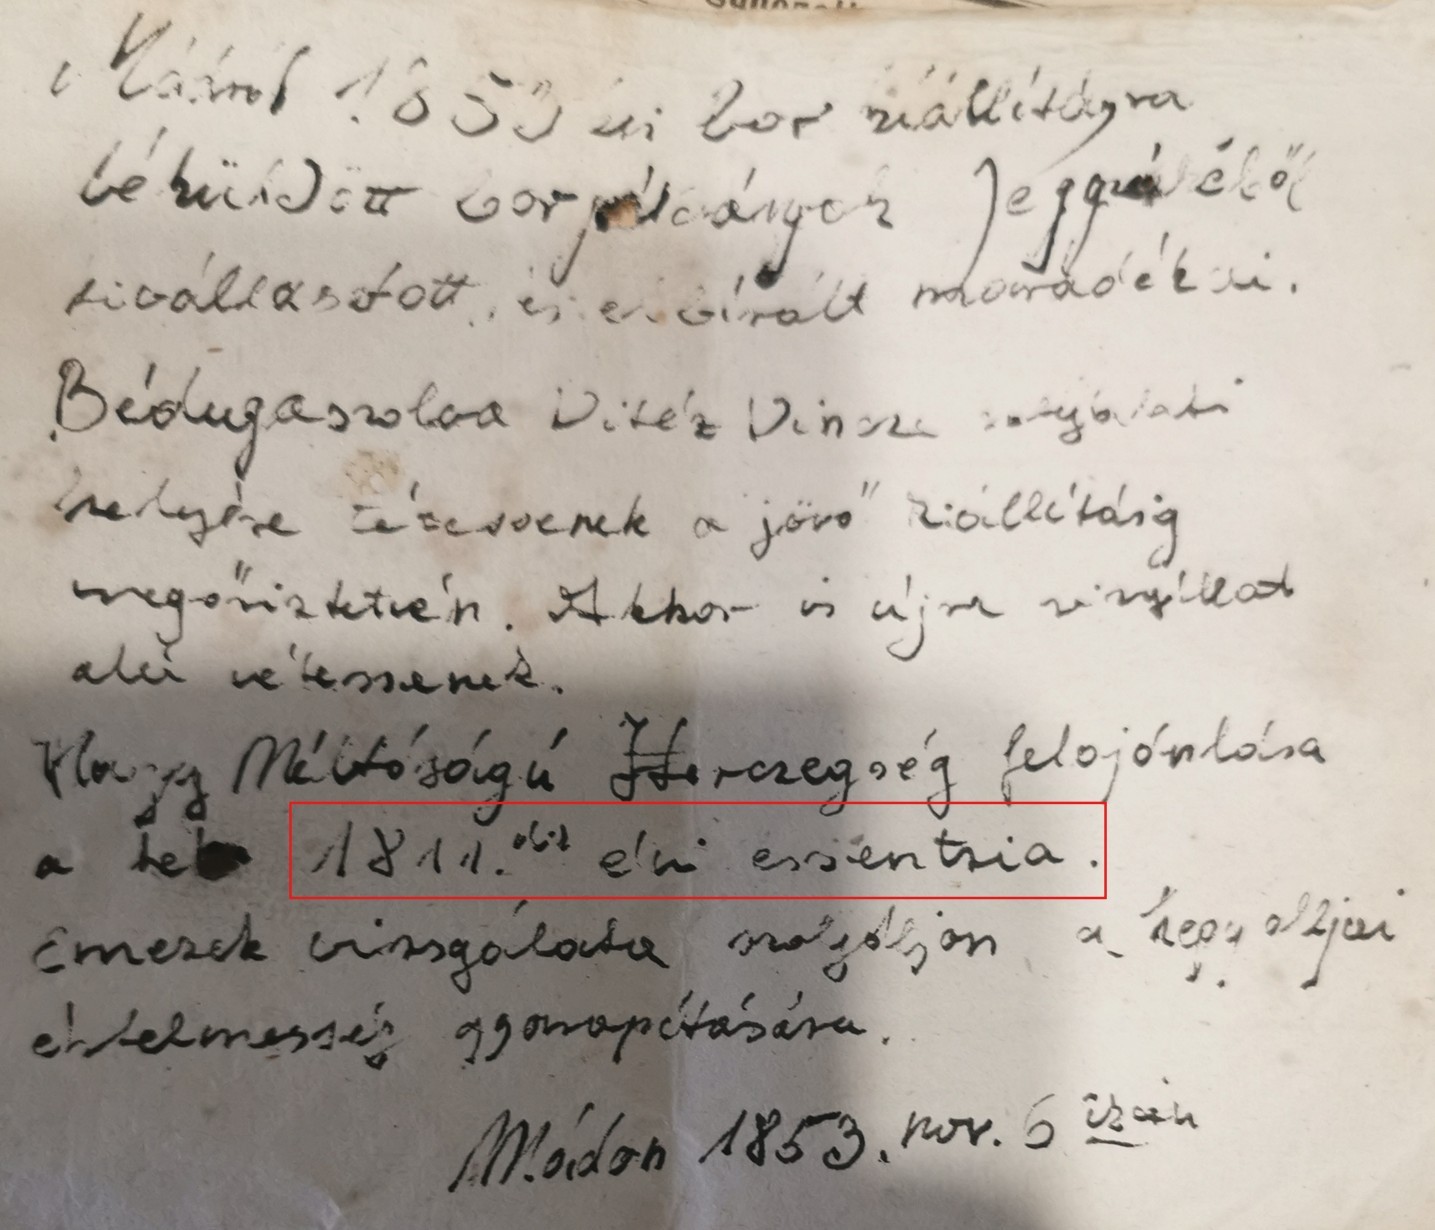 Mádról 1853 évi bor kiállításra
béküldött borpálczányok Jeggzékéből
kiválasztott, és elbírált maradékai.
Bédugaszolva Vitéz Vincze szolgálati
helyére tétessenek a jövő kiállításig
megőriztetvén. Akkor is újra vizsgállat
alá vétessenek.
Nagy Méltóságú Herczegség felajónlása
a 1811. évi essentzia.
Emezek vizsgálata szolgáljon a hegyalljai
értelmesség gyarapítására.
Mádon 1853. nov. 6